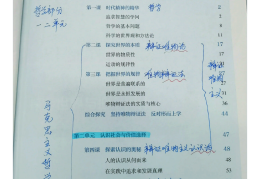 哲学部分
一二单元
第一课 时代精神的精华 哲学 2
追求智慧的学问 2
哲学的基本问题
科学的世界观和方法论
第二课 探究世界的本质 辩证唯物论
世界的物质性
运动的规律性
第三课 把握世界的规律 唯物辩证法
世界是普遍联系的
世界是永恒发展的
唯物辩证法的实质与核心
综合探究 坚持唯物辩证法 反对形而上学
辩证唯物主义
第二单元 认识社会与价值选择 47
第四课 探索认识的奥秘 辩证唯物主义认识论 48
人的认识从何而来 48
在实践中追求和发展真理
马克思主义哲学